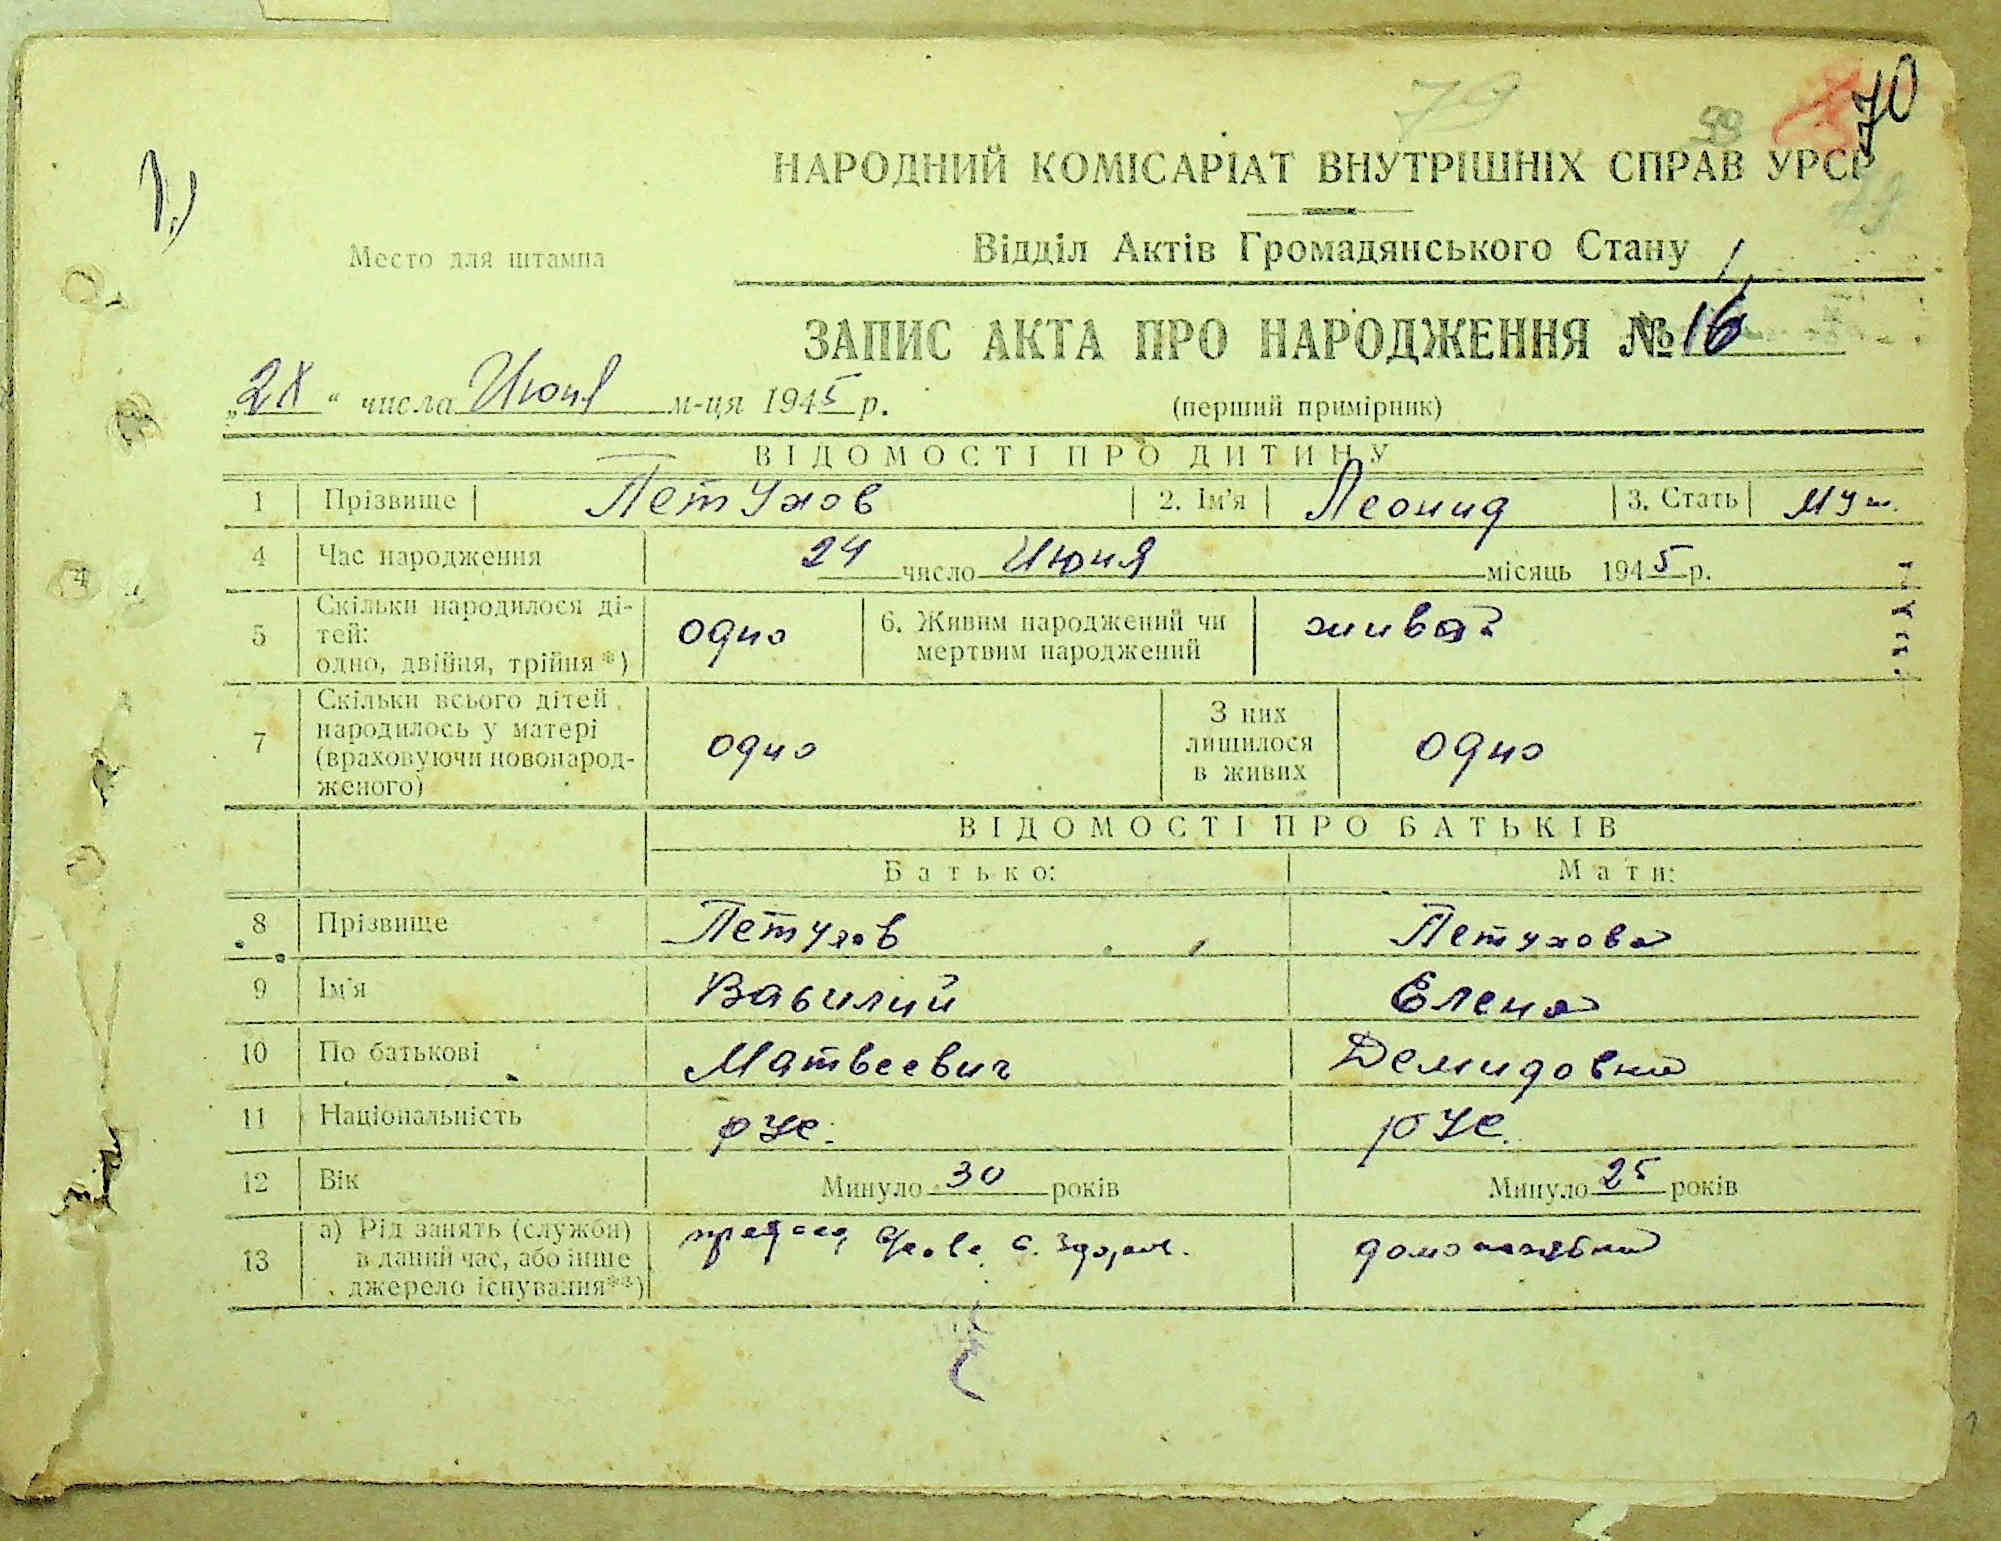 79
99
70
НАРОДНИЙ КОМІСАРІАТ ВНУТРІШНІХ СПРАВ УРСР
Место для штампа
Відділ Актів Громадянського Стану
ЗАПИС АКТА ПРО НАРОДЖЕННЯ № 16
„28“ числа Июня м-ця 1945 р.
(перший примірник)
ВІДОМОСТІ ПРО ДИТИНУ
1 Прізвище Петухов 2. Ім'я Леонид 3. Стать муж.
4 Час народження 24 число Июня місяць 1945 р.
5 Скільки народилося ді-
тей:
одно, двійня, трійня*) одно 6. Живим народжений чи
мертвим народжений живой
7 Скільки всього дітей
народилось у матері
(враховуючи новонарод-
женого) одно З них
лишилося
в живих одно
ВІДОМОСТІ ПРО БАТЬКІВ
Батько: Мати:
8 Прізвище Петухов Петухова
9 Ім'я Василий Елена
10 По батькові Матвеевич Демидовна
11 Національність рус. рус.
12 Вік Минуло 30 років Минуло 25 років
13 а) Рід занять (служби)
в даний час, або інше
джерело існування**) председ с. домохозяйка